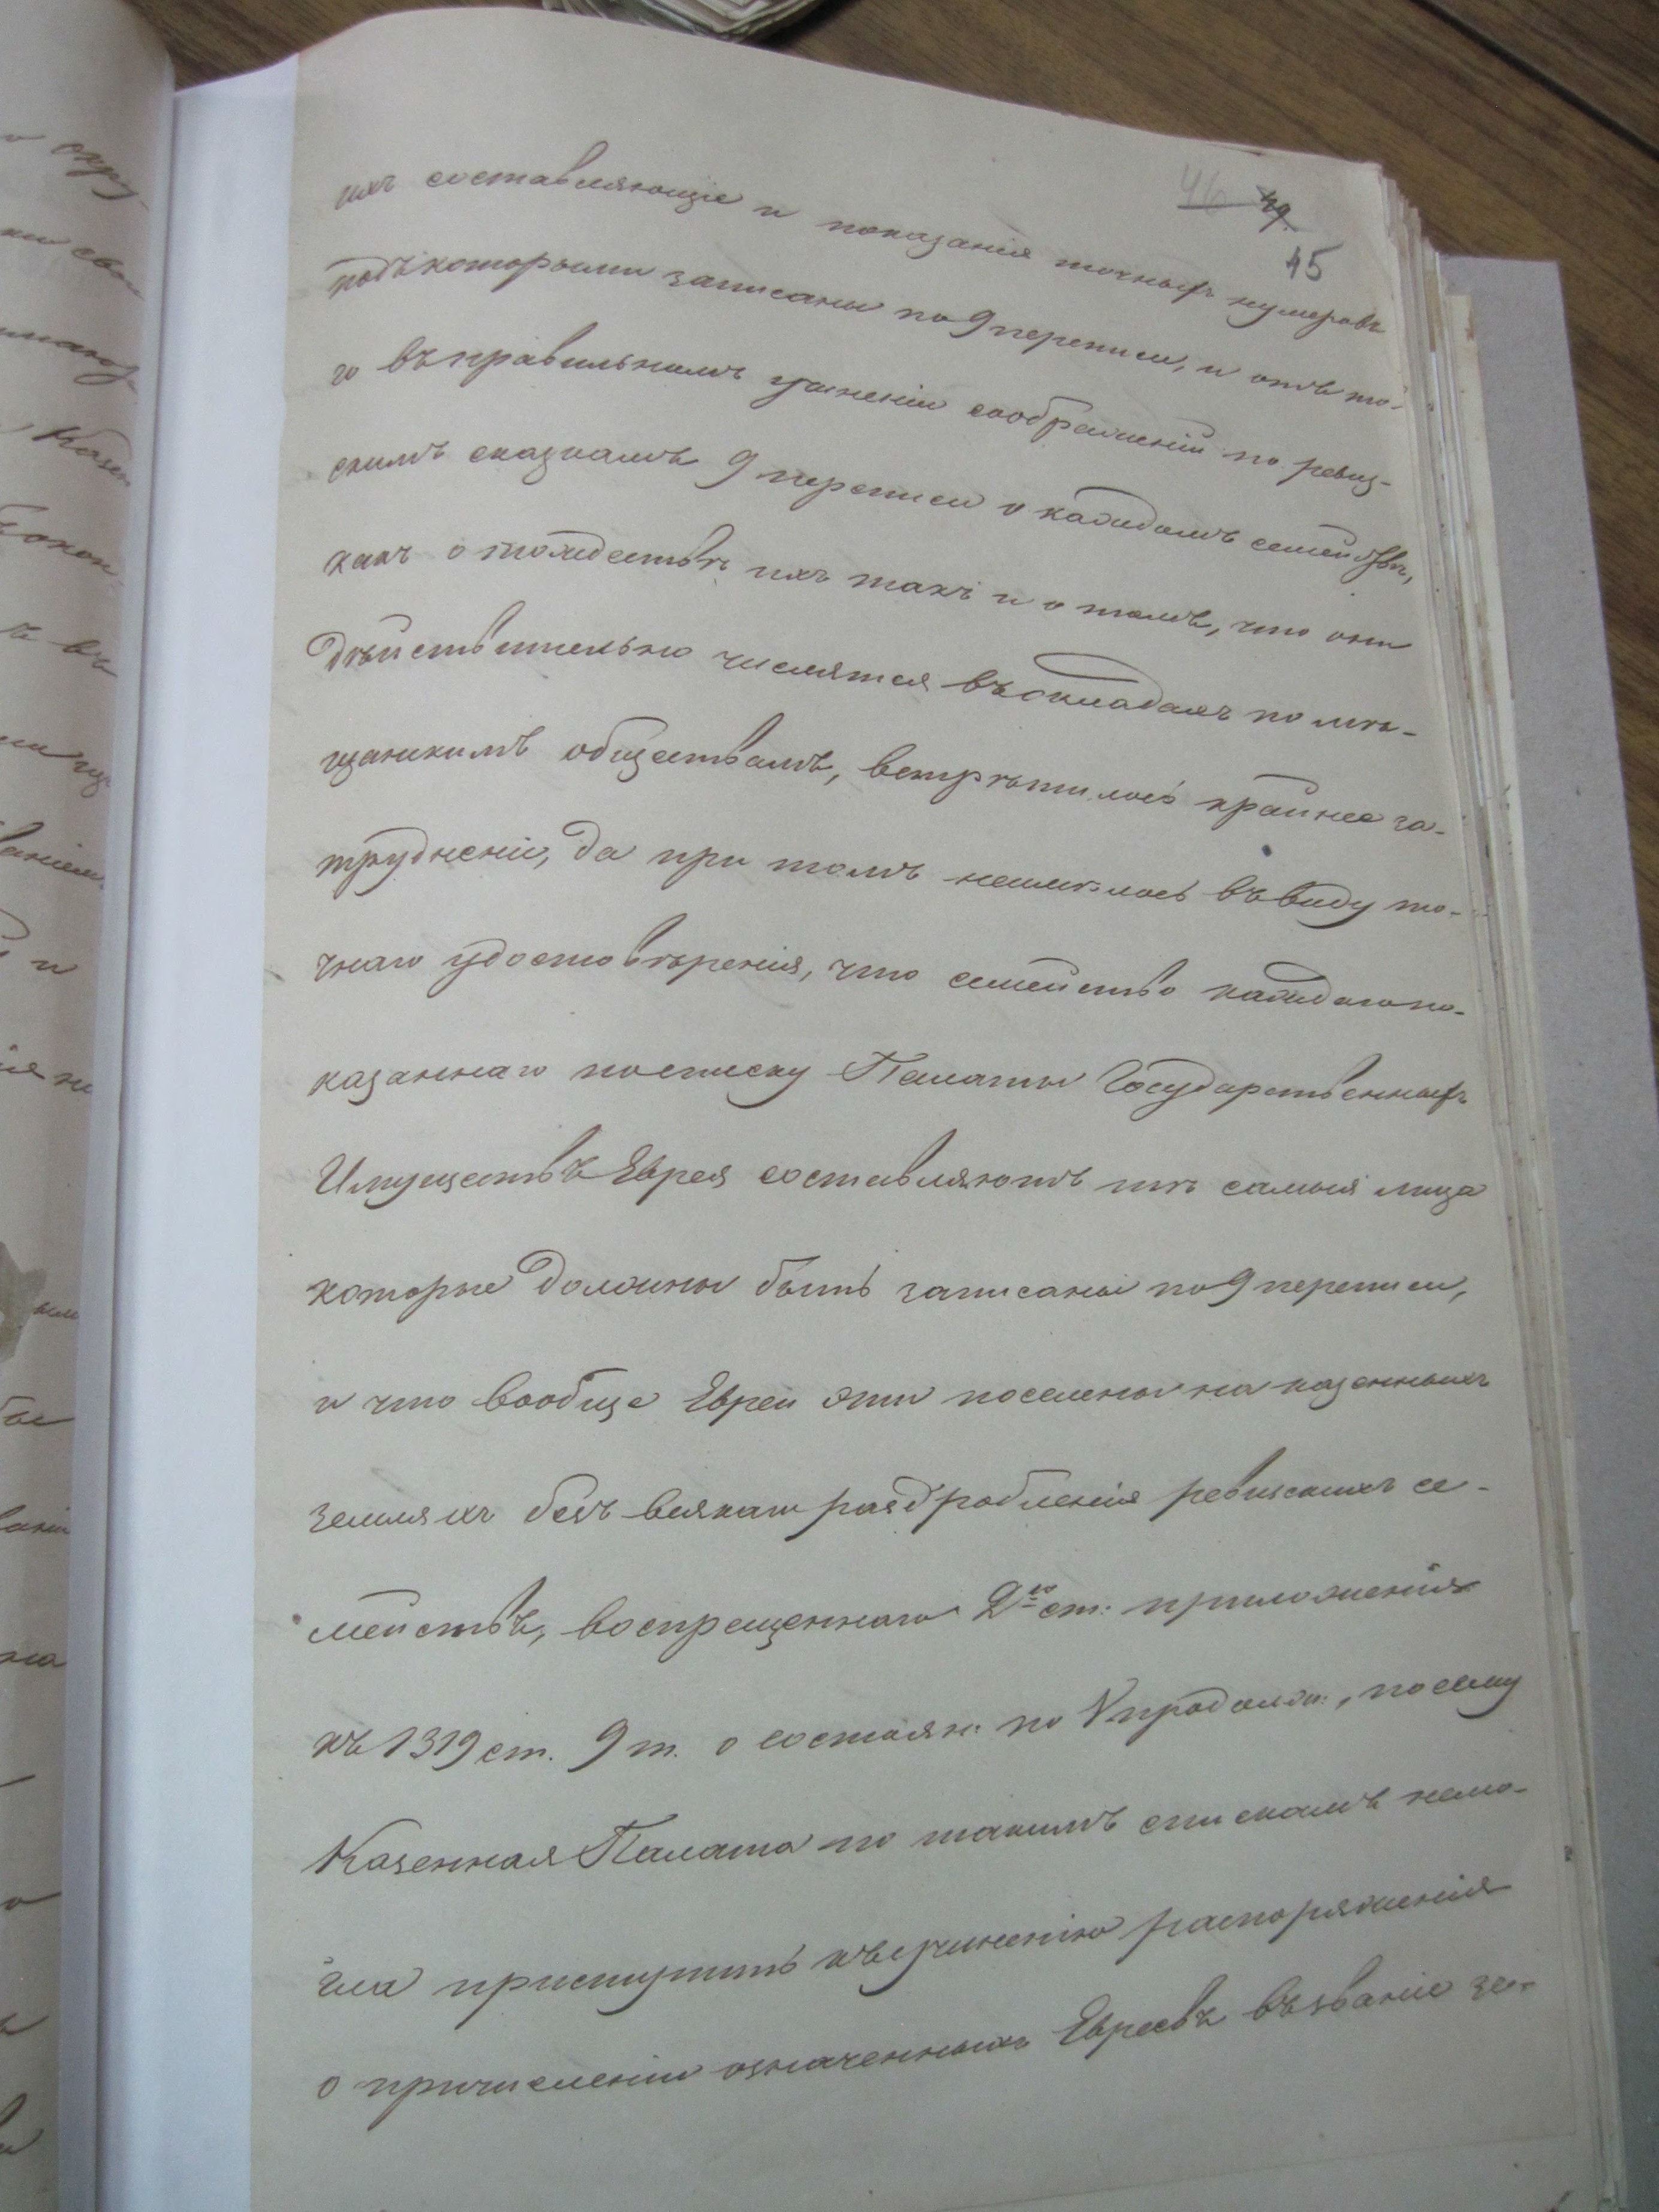 46 49.
45
ихъ составляющіе и показанія точныхъ нумеровъ
подъ которыми записаны по 9 переписи, и отъ то-
го въ правильномъ учиненіи соображеній по ревиз-
скимъ сказкамъ 9 переписи о каждомъ семействѣ,
какъ о тождествѣ ихъ такъ и о томъ, что они
дѣйствительно числятся въ окладахъ по мѣ-
щанскимъ обществамъ, встрѣтилось крайнее за-
трудненіе, да при томъ неимѣлось въ виду то-
чнаго удостовѣренія, что семейство каждаго по-
казаннаго по списку Палаты Государственныхъ
Имуществъ Еврея составляютъ тѣ самыя лица
которые должны быть записаны по 9 переписи,
и что вообще Евреи эти поселены на казенныхъ
земляхъ безъ всякаго раздробленія ревизскихъ се-
мействъ, воспрещеннаго 2ю ст: приложенія
къ 1319 ст. 9 т. о состоян: по V продолж:, по сему
Казенная Палата по такимъ спискамъ немо-
гла приступить къ учиненію распоряженія
о причисленіи означенныхъ Евреевъ въ званіе зе-